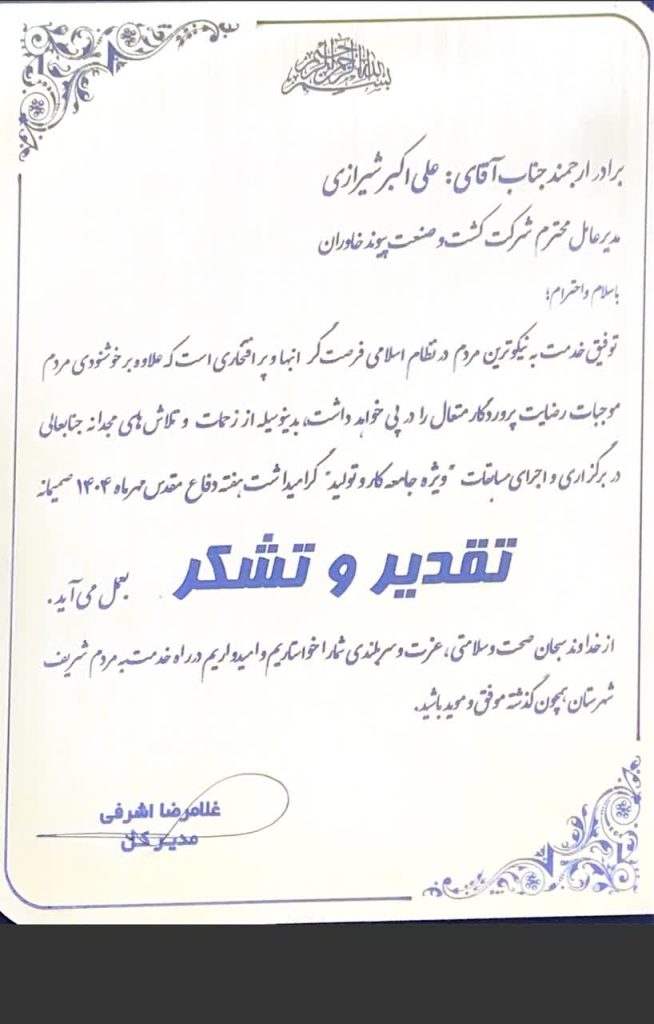 بسم الله الرحمن الرحیم
برادر ارجمند جناب آقای: علی اکبر شیرازی
مدیرعامل محترم شرکت کشت و صنعت پیوند خاوران
باسلام و احترام؛
توفیق خدمت به نیکوترین مردم در نظام اسلامی فرصت گرانبها و پر افتخاری است که علاوه بر خوشنودی مردم
موجبات رضایت پروردگار متعال را در پی خواهد داشت، بدینوسیله از زحمات و تلاش های مجدانه جنابعالی
در برگزاری و اجرای مسابقات "ویژه جامعه کار و تولید" گرامیداشت هفته دفاع مقدس مهرماه ۱۴۰۴ صمیمانه
تقدیر و تشکر بعمل می آید.
از خداوند سبحان صحت و سلامتی، عزت و سربلندی شما را خواستاریم و امیدواریم در راه خدمت به مردم شریف
شهرستان همچون گذشته موفق و موید باشید.
غلامرضا اشرفی
مدیر کل